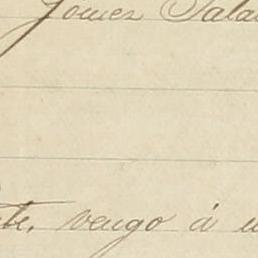 Gomez Pala
te, vengo á u